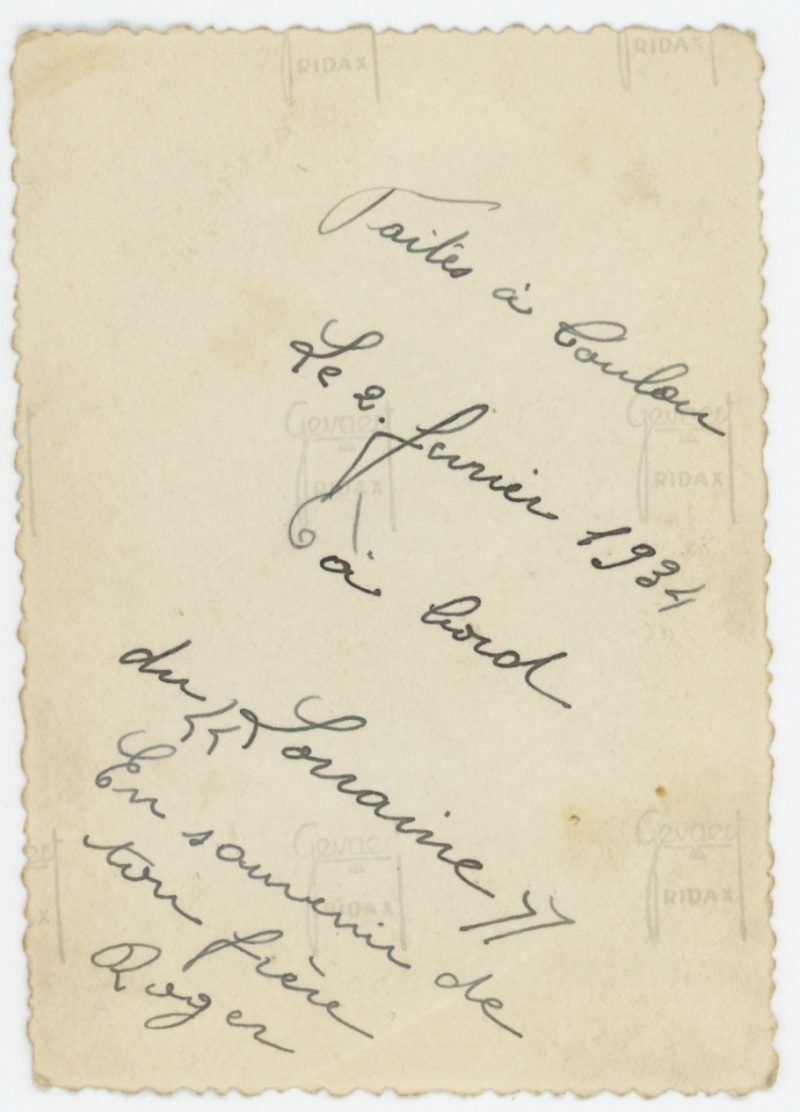 RIDAX
RIDAX
Faites à Toulon
Le 2. fevrier 1934
à bord
du " Lorraine "
En souvenir de
ton frère
Roger
Gevaert
RIDAX
Gevaert
RIDAX
Gevaert
RIDAX
Gevaert
RIDAX